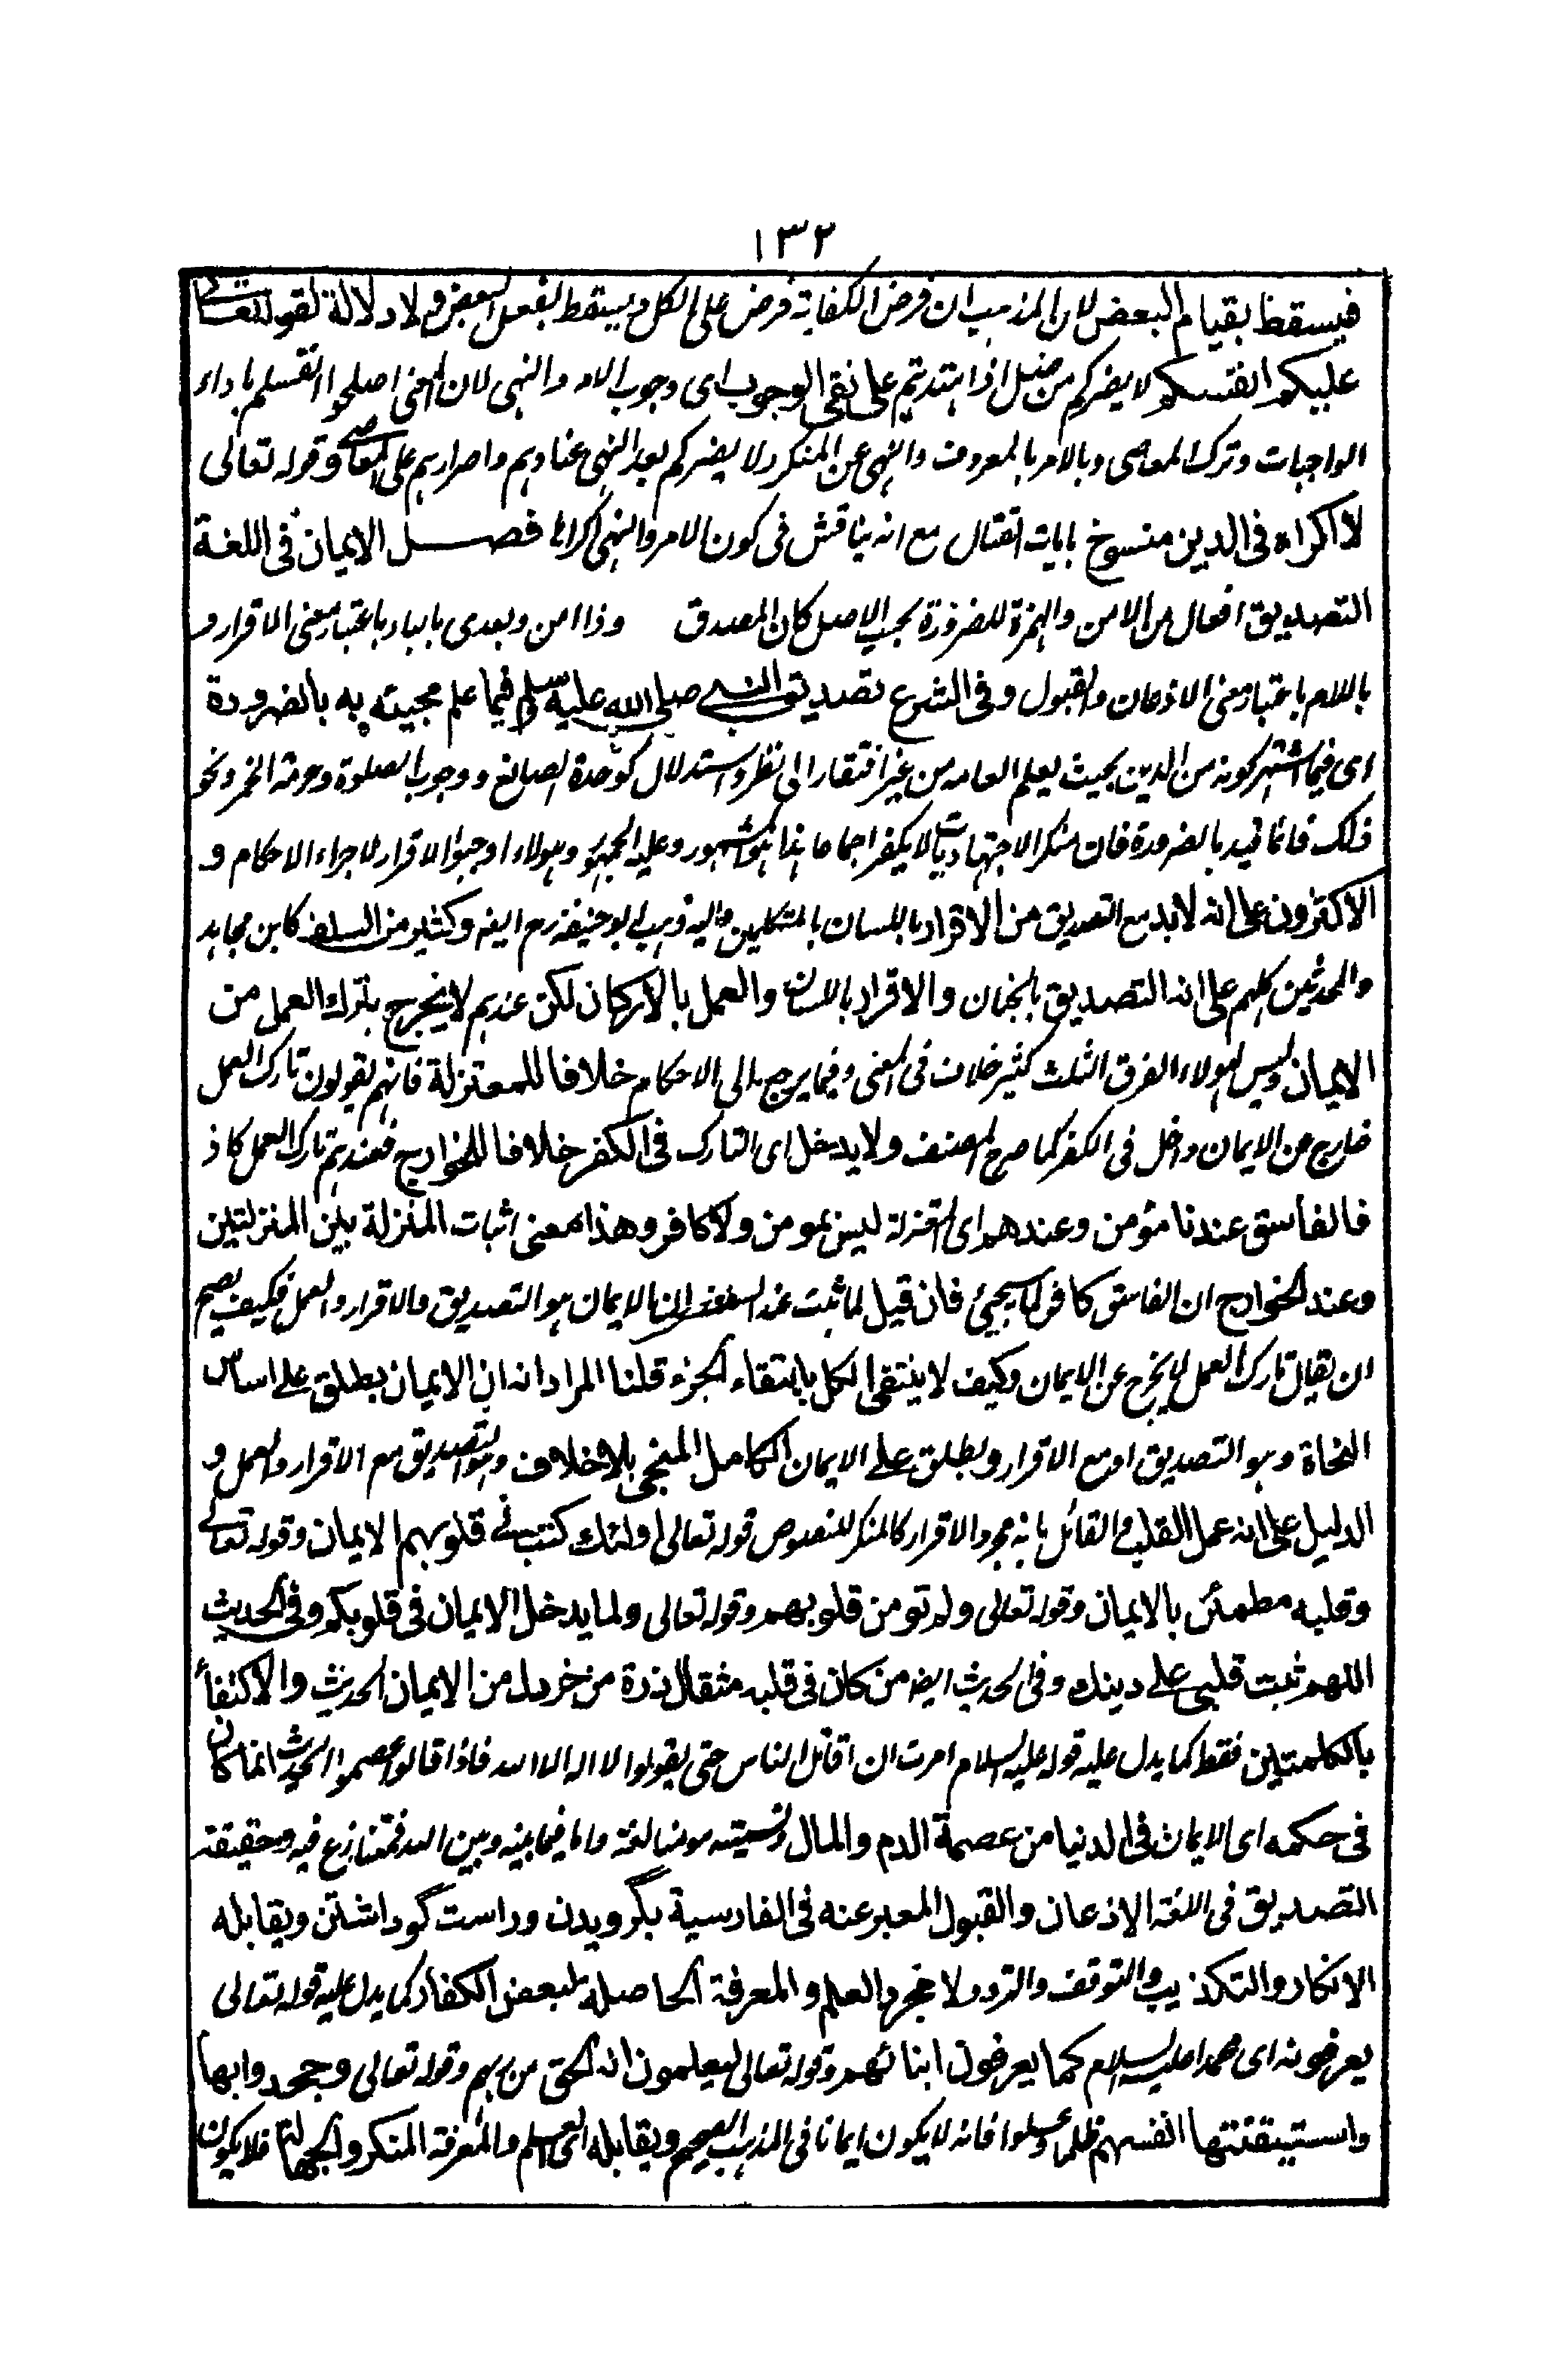 ١٣٢
فيسقط بقيام البعض لان المذهب ان فرض الكفاية فرض على الكل ويسقط بفعل البعض ولا دلالة لقوله تعالى
عليكم انفسكم لا يضركم من ضل اذا اهتديتم على نفى الوجوب اى وجوب الامر والنهى لان المعنى اصلحوا انفسكم باداء
الواجبات وترك المعاصى وبالامر بالمعروف والنهى عن المنكر ولا يضركم بعد النهى عنادهم واصرارهم على المعاصى وقوله تعالى
لا اكراه فى الدين منسوخ بايات القتال مع انه يناقش فى كون الامر والنهى اكراها فصل الايمان فى اللغة
التصديق افعال من الامن والهمزة للضرورة بحسب الاصل كان المصدق وذا امن وبعدى بالباء باعتبار معنى الاقرار و
باللام باعتبار معنى الاذعان والقبول وفى الشرع تصديق النبى صلى الله عليه وسلم فيما علم مجيئه به بالضرورة
اى فيما اشتهر كونه من الدين بحيث يعلم العامه من غير افتقار الى نظر واستدلال كوحدة الصانع ووجوب الصلوة وحرمة الخمر ونحو
ذلك فانما قيد بالضرورة فان منكر الاجتهاديات لا يكفر اجماعا هذا هو المشهور وعليه الجمهور وهولاء اوجبوا الاقرار لاجراء الاحكام و
الاكثرون على انه لا بد مع التصديق من الاقرار باللسان بالمتكلمين واليه ذهب ابو حنيفة رح ايضه وكثير من السلف كابن مجاهد
والمحدثين كلهم على انه التصديق بالجنان والاقرار باللسان والعمل بالاركان لكن عندهم لا يخرج بترك العمل من
الايمان وليس لهولاء الفرق الثلث كثير خلاف فى المعنى وفيما يرجع الى الاحكام خلافا للمعتزلة فانهم يقولون تارك العمل
خارج عن الايمان داخل فى الكفر كما صرح المصنف ولا يدخل اى التارك فى الكفر خلافا للخوارج فعندهم تارك العمل كافر
فالفاسق عندنا مؤمن وعندهم اى المعتزلة ليس بمومن ولا كافر وهذا معنى اثبات المنزلة بين المنزلتين
وعند الخوارج ان الفاسق كافر كما سيجئ فان قيل لما ثبت عند السلف ان الايمان هو التصديق والاقرار والعمل فكيف يصح
ان يقال تارك العمل لا يخرج عن الايمان وكيف لا ينتفى الكل بانتفاء الجزء قلنا المراد انه ان الايمان يطلق على اساس
النجاة وهو التصديق او مع الاقرار ويطلق على الايمان الكامل المنجى بلا خلاف وهو التصديق مع الاقرار والعمل و
الدليل على انه عمل القلب والقائل بانه مجرد الاقرار كالمنكر للنصوص قوله تعالى اولئك كتب فى قلوبهم الايمان وقوله تعالى
وقلبه مطمئن بالايمان وقوله تعالى ولم تومن قلوبهم وقوله تعالى ولما يدخل الايمان فى قلوبكم وفى الحديث
اللهم ثبت قلبى على دينك وفى الحديث ايضه من كان فى قلبه مثقال ذرة من خردل من الايمان الحديث والاكتفأ
بالكلمتين فقط كما يدل عليه قوله عليه السلام امرت ان اقاتل الناس حتى يقولوا لا اله الا الله فاذا قالوا عصموا الحديث انما كان
فى حكمه اى الايمان فى الدنيا من عصمة الدم والمال وتسميته مومنا لغة واما فيما بينه وبين الله فمتنازع فيه وحقيقته
التصديق فى اللغة الاذعان والقبول المعبر عنه فى الفارسية بگرويدن وراست گو داشتن ويقابله
الانكار والتكذيب والتوقف والتردد لا مجرد العلم والمعرفة الحاصلة لبعض الكفار كما يدل عليه قوله تعالى
يعرفونه اى محمدا عليه السلام كما يعرفون ابنائهم وقوله تعالى ليعلمون انه الحق من ربهم وقوله تعالى وجحدوا بها
واستيقنتها انفسهم ظلما وعلوا فانه لا يكون ايمانا فى المذهب الصحيح ويقابله اى العلم والمعرفة المنكر والجهالة فلا يكون